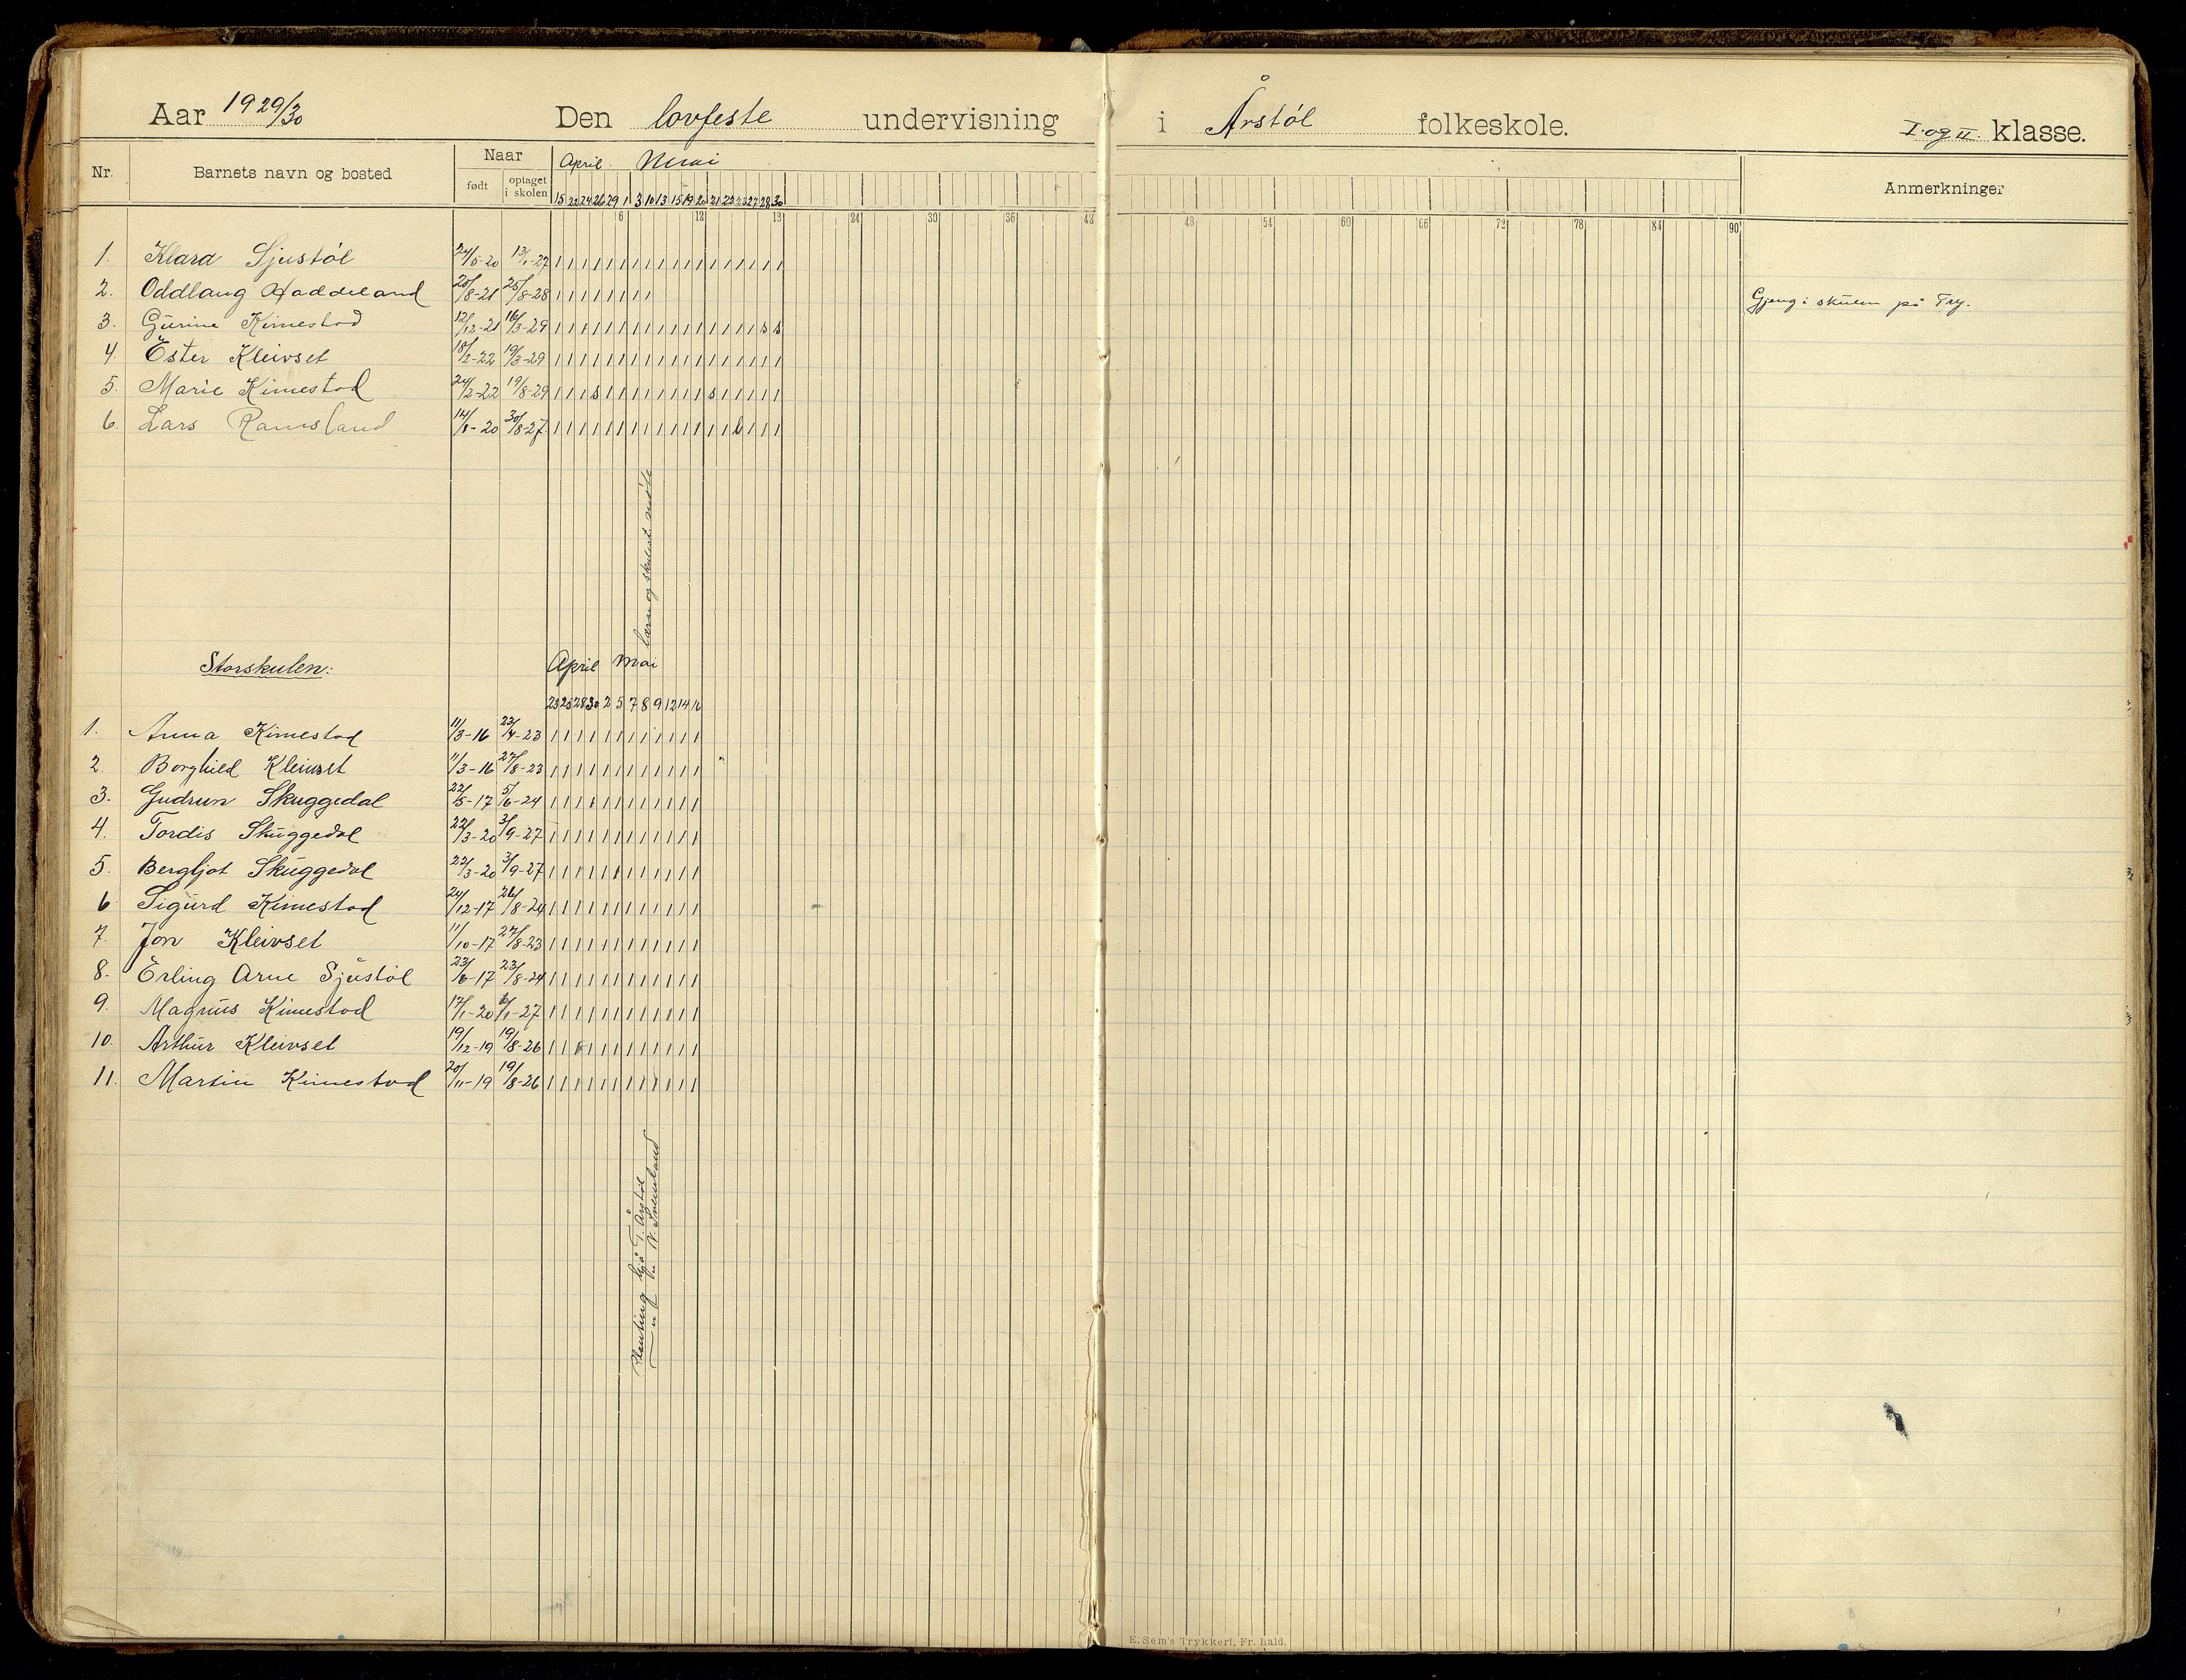 Aar 1929/30 Den lovfeste undervisning i Årstøl folkeskole. I og II klasse.
Nr. Barnets navn og bosted Naar født optaget i skolen April Mai Anmerkninger
15 22 24 26 29 1 3 10 13 15 19 20 21 22 23 27 28 30
6 12 18 24 30 36 42 48 54 60 66 72 78 84 90
1. Klara Sjustøl 24/5-20 13/1-27
2. Oddlaug Haddeland 20/8-21 25/8-28 Gjeng i skulen på Try.
3. Gurine Kimestad 12/12-21 16/3-29 s s
4. Ester Kleivset 18/2-22 19/3-29
5. Marie Kimestad 24/2-22 19/8-29 s s
6. Lars Ramsland 14/8-20 30/8-27
Lærar og skulest. møte
Storskulen: April Mai
23 25 28 30 2 5 7 8 9 12 14 16
1. Anna Kimestad 11/3-16 23/4-23
2. Borghild Kleivset 11/3-16 27/8-23
3. Gudrun Skuggedal 22/5-17 5/6-24
4. Tordis Skuggedal 22/3-20 3/9-27
5. Bergljot Skuggedal 22/3-20 3/9-27
6 Sigurd Kimestad 24/12-17 26/8-24
7. Jon Kleivset 11/10-17 27/8-23
8. Erling Arne Sjustøl 23/6-17 23/8-24
9. Magnus Kimestad 17/1-20 6/1-27
10. Arthur Kleivset 19/12-19 19/8-26
11. Martin Kimestad 20/11-19 19/8-26
Planting hjå T. Årstøl
— " — N. Sveinsland
E. Sem's Trykkeri, Fr. hald.